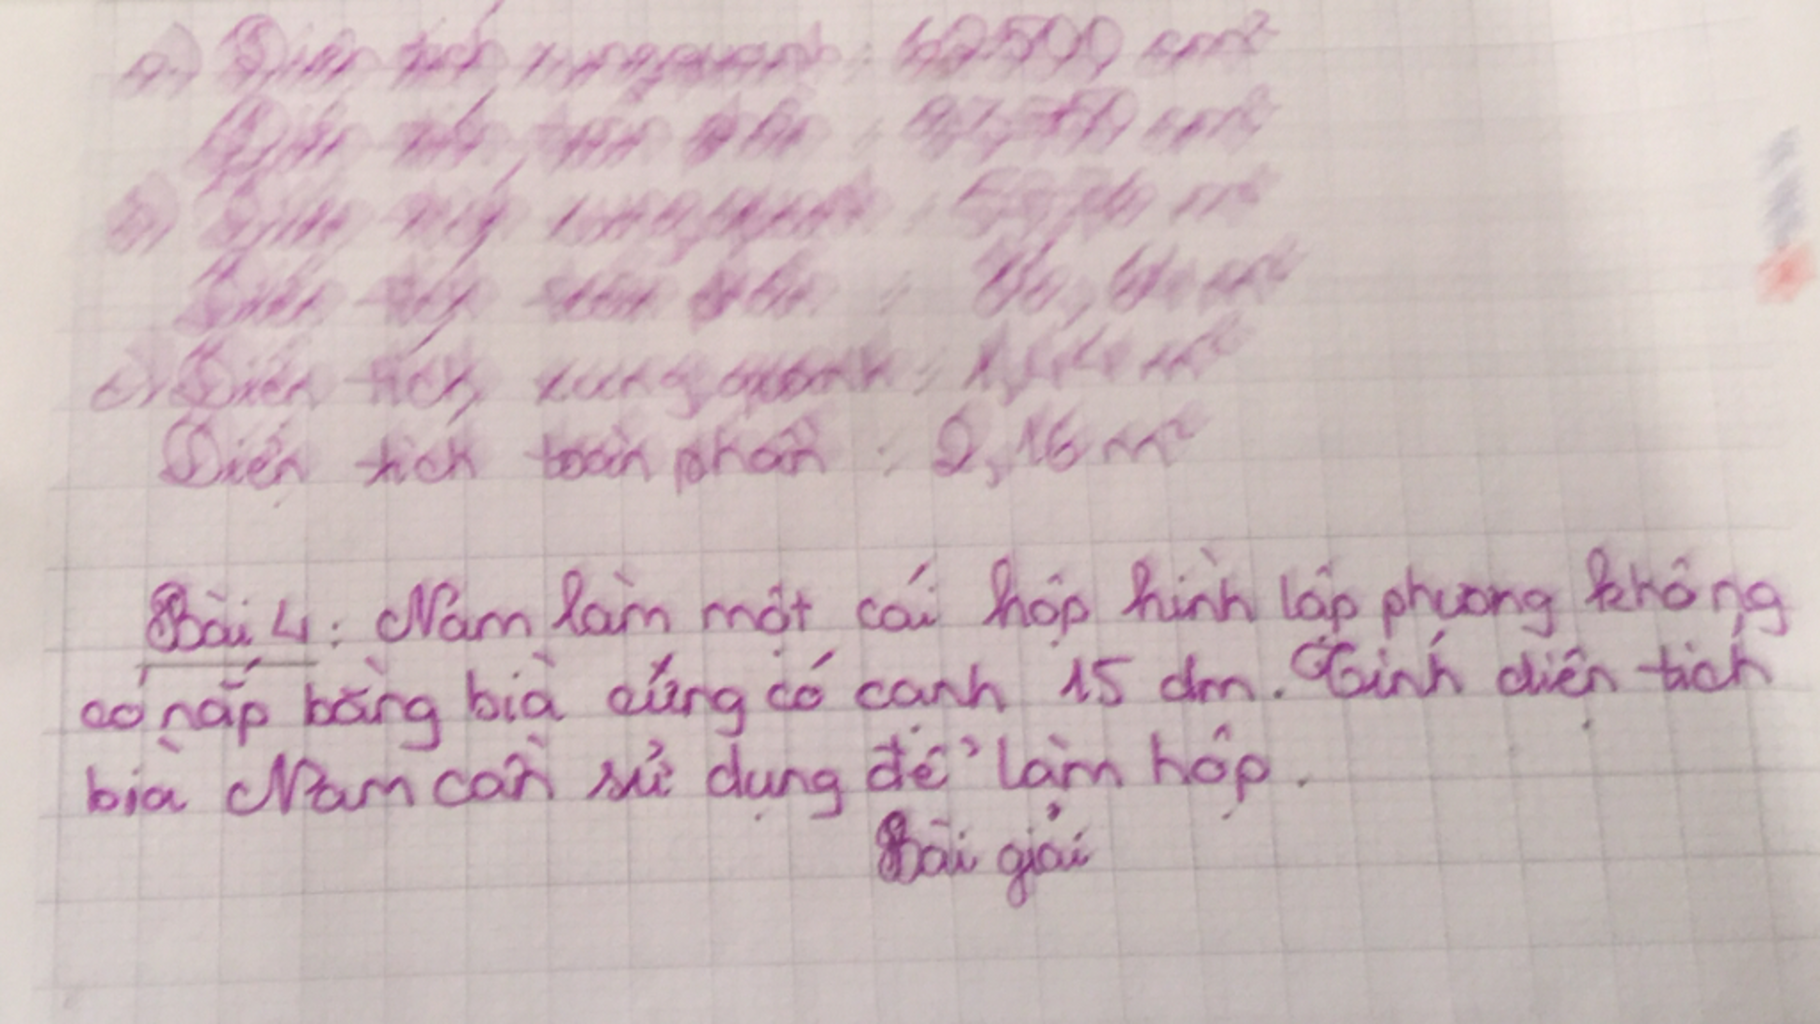 a) Diện tích xung quanh : 62500 cm²
Diện tích toàn phần : cm²
b) Diện tích xung quanh : m²
Diện tích toàn phần : m²
c) Diện tích xung quanh : 1,44 m²
Diện tích toàn phần : 2,16 m²
Bài 4 : Nam làm một cái hộp hình lập phương không
có nắp bằng bìa cứng có cạnh 15 dm. Tính diện tích
bìa Nam cần sử dụng để làm hộp .
Bài giải